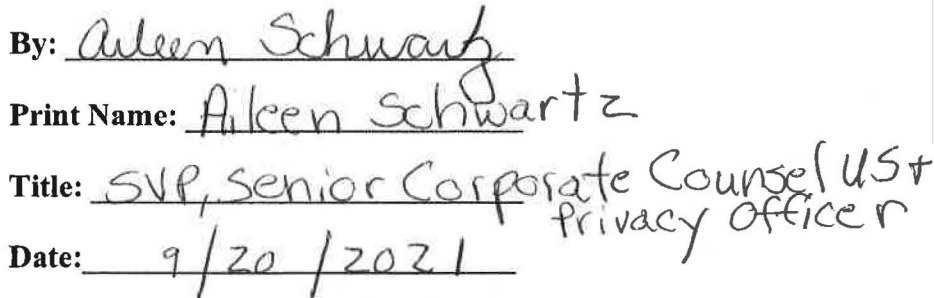 By: Aileen Schwartz
Print Name: Aileen Schwartz
Title: SVP, Senior Corporate Counsel US +
Privacy Officer
Date: 9/20/2021